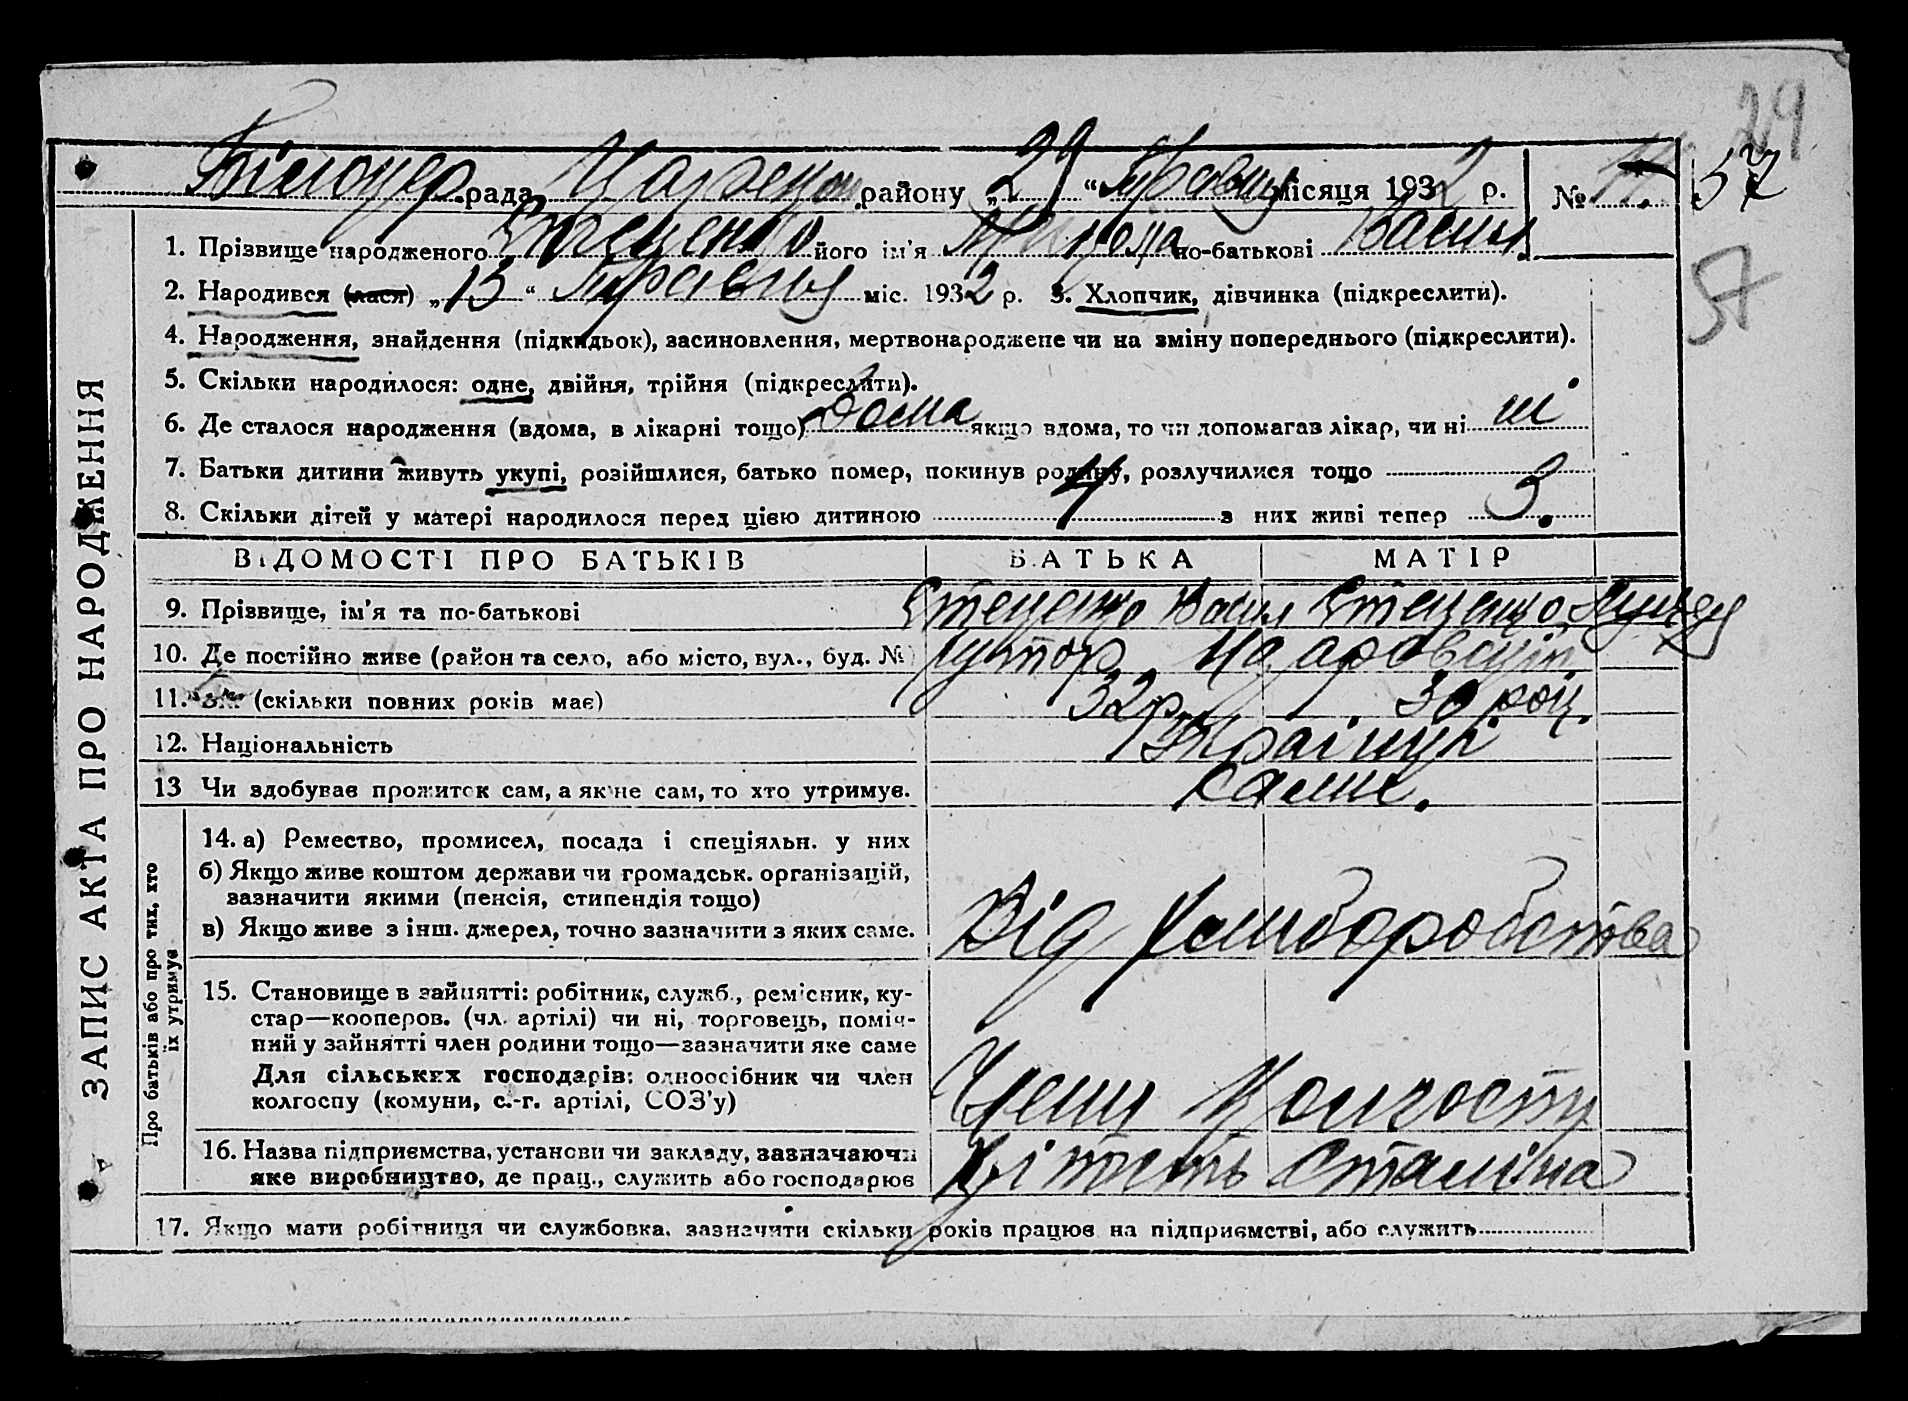 29
Білоцер. рада Царичан району „29“ Травня місяця 1932 р. № 11. 57
57
1. Прізвище народженого Стеценко його ім'я по-батькові Васил.
2. Народився (лася) „15“ Травня міс. 1932 р. 3. Хлопчик, дівчинка (підкреслити).
4. Народження, знайдення (підкидьок), засиновлення, мертвонароджене чи на зміну попереднього (підкреслити).
5. Скільки народилося: одне, двійня, трійня (підкреслити).
6. Де сталося народження (вдома, в лікарні тощо) Дома якщо вдома, то чи допомагав лікар, чи ні ні
7. Батьки дитини живуть укупі, розійшлися, батько помер, покинув родину, розлучилися тощо
8. Скільки дітей у матері народилося перед цією дитиною 4 з них живі тепер 3.
ВІДОМОСТІ ПРО БАТЬКІВ БАТЬКА МАТІР
9. Прізвище, ім'я та по-батькові Стеценко Васил Стеценко
10. Де постійно живе (район та село, або місто, вул., буд. №) Хутор
11. Вік (скільки повних років має) 32 р. 30 роц.
12. Національність Українці
13 Чи здобуває прожиток сам, а як не сам, то хто утримує. сами.
14. а) Ремество, промисел, посада і спеціяльн. у них
б) Якщо живе коштом держави чи громадськ. організацій,
зазначити якими (пенсія, стипендія тощо)
в) Якщо живе з інш. джерел, точно зазначити з яких саме. Від Хліборобства
15. Становище в зайнятті: робітник, служб., ремісник, ку-
стар—кооперов. (чл. артілі) чи ні, торговець, поміч-
ний у зайнятті член родини тощо—зазначити яке саме
Для сільських господарів: одноосібник чи член
колгоспу (комуни, с.-г. артілі, СОЗ'у) Члени Колгоспу
16. Назва підприємства, установи чи закладу, зазначаючи
яке виробництво, де прац., служить або господарює Сталіна
17. Якщо мати робітниця чи службовка, зазначити скільки років працює на підприємстві, або служить
ЗАПИС АКТА ПРО НАРОДЖЕННЯ
Про батьків або про тих, хто
їх утримує